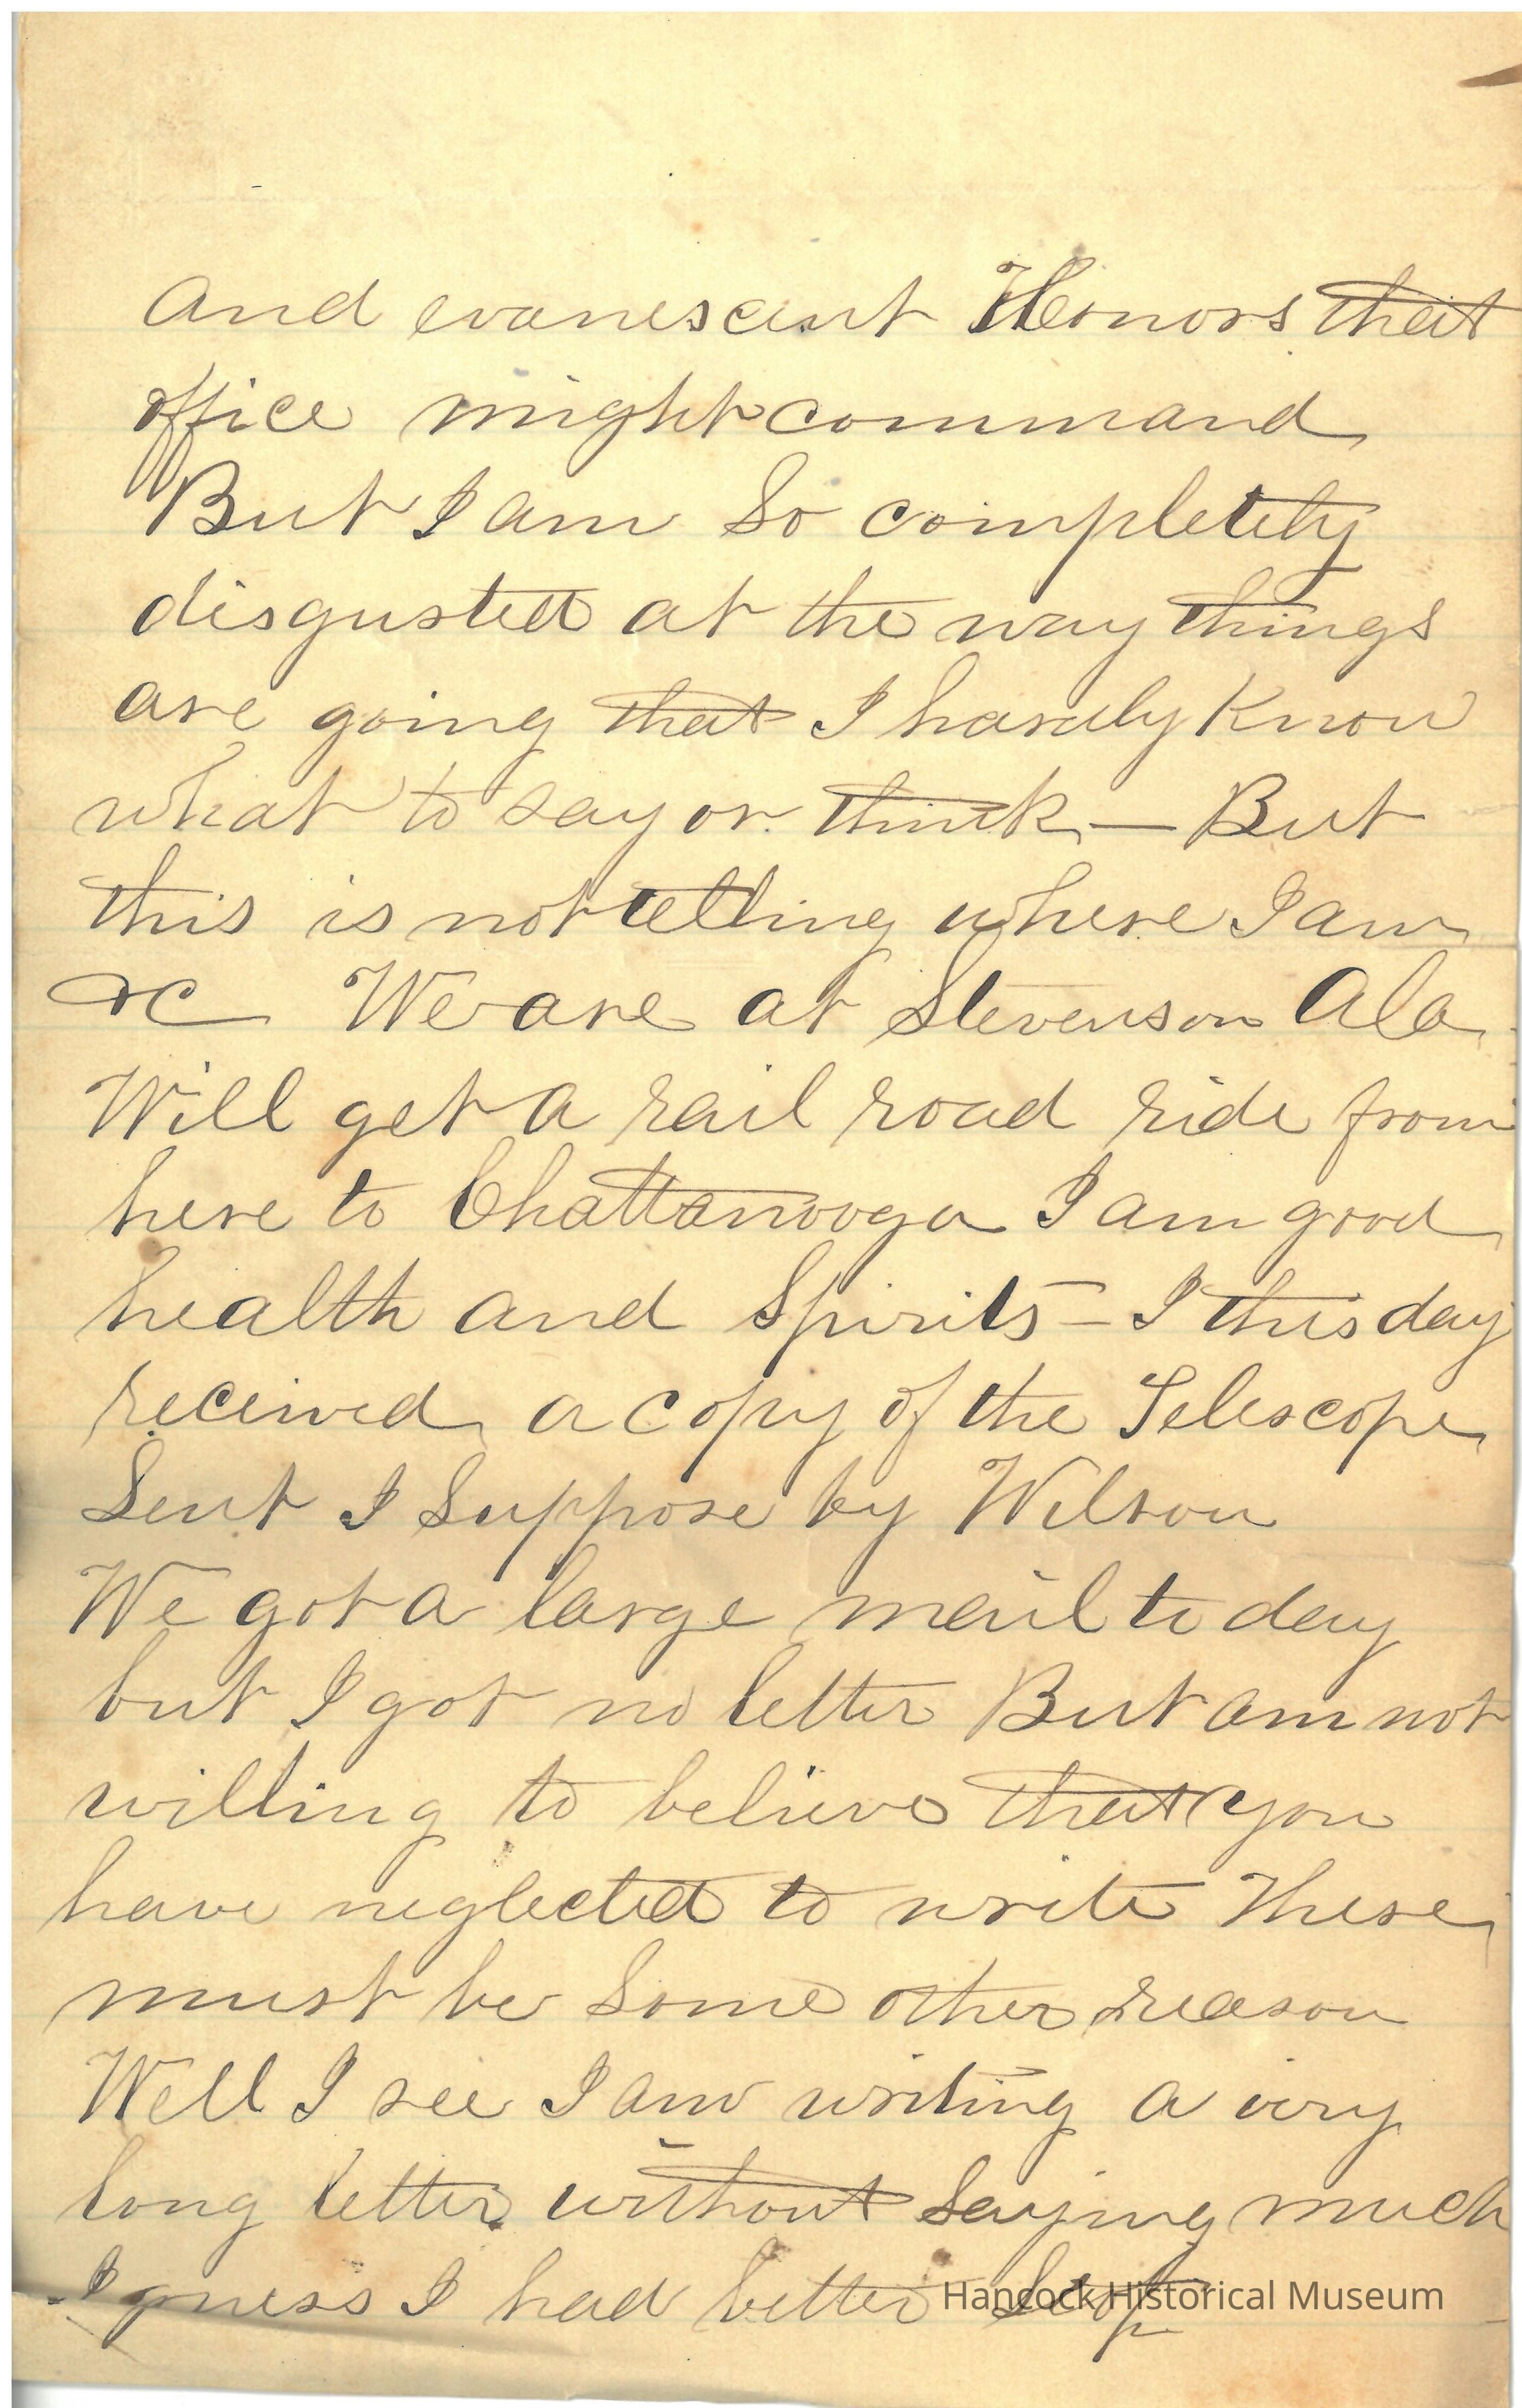 And evanescent Honors that
office might command
But I am So completely
disgusted at the way things
are going that I hardly Know
what to say or think — But
this is not telling where I am
&C We are at Stevenson Ala
Will get a rail road ride from
here to Chattanooga I am good
health and Spirits – I this day
received a copy of the Telescope
Sent I Suppose by Wilson
We got a large mail to day
but I got no letter But am not
willing to believe that you
have neglected to write There
must be Some other reason
Well I see I am writing a very
long letter without Saying much
I guess I had better Stop
Hancock Historical Museum